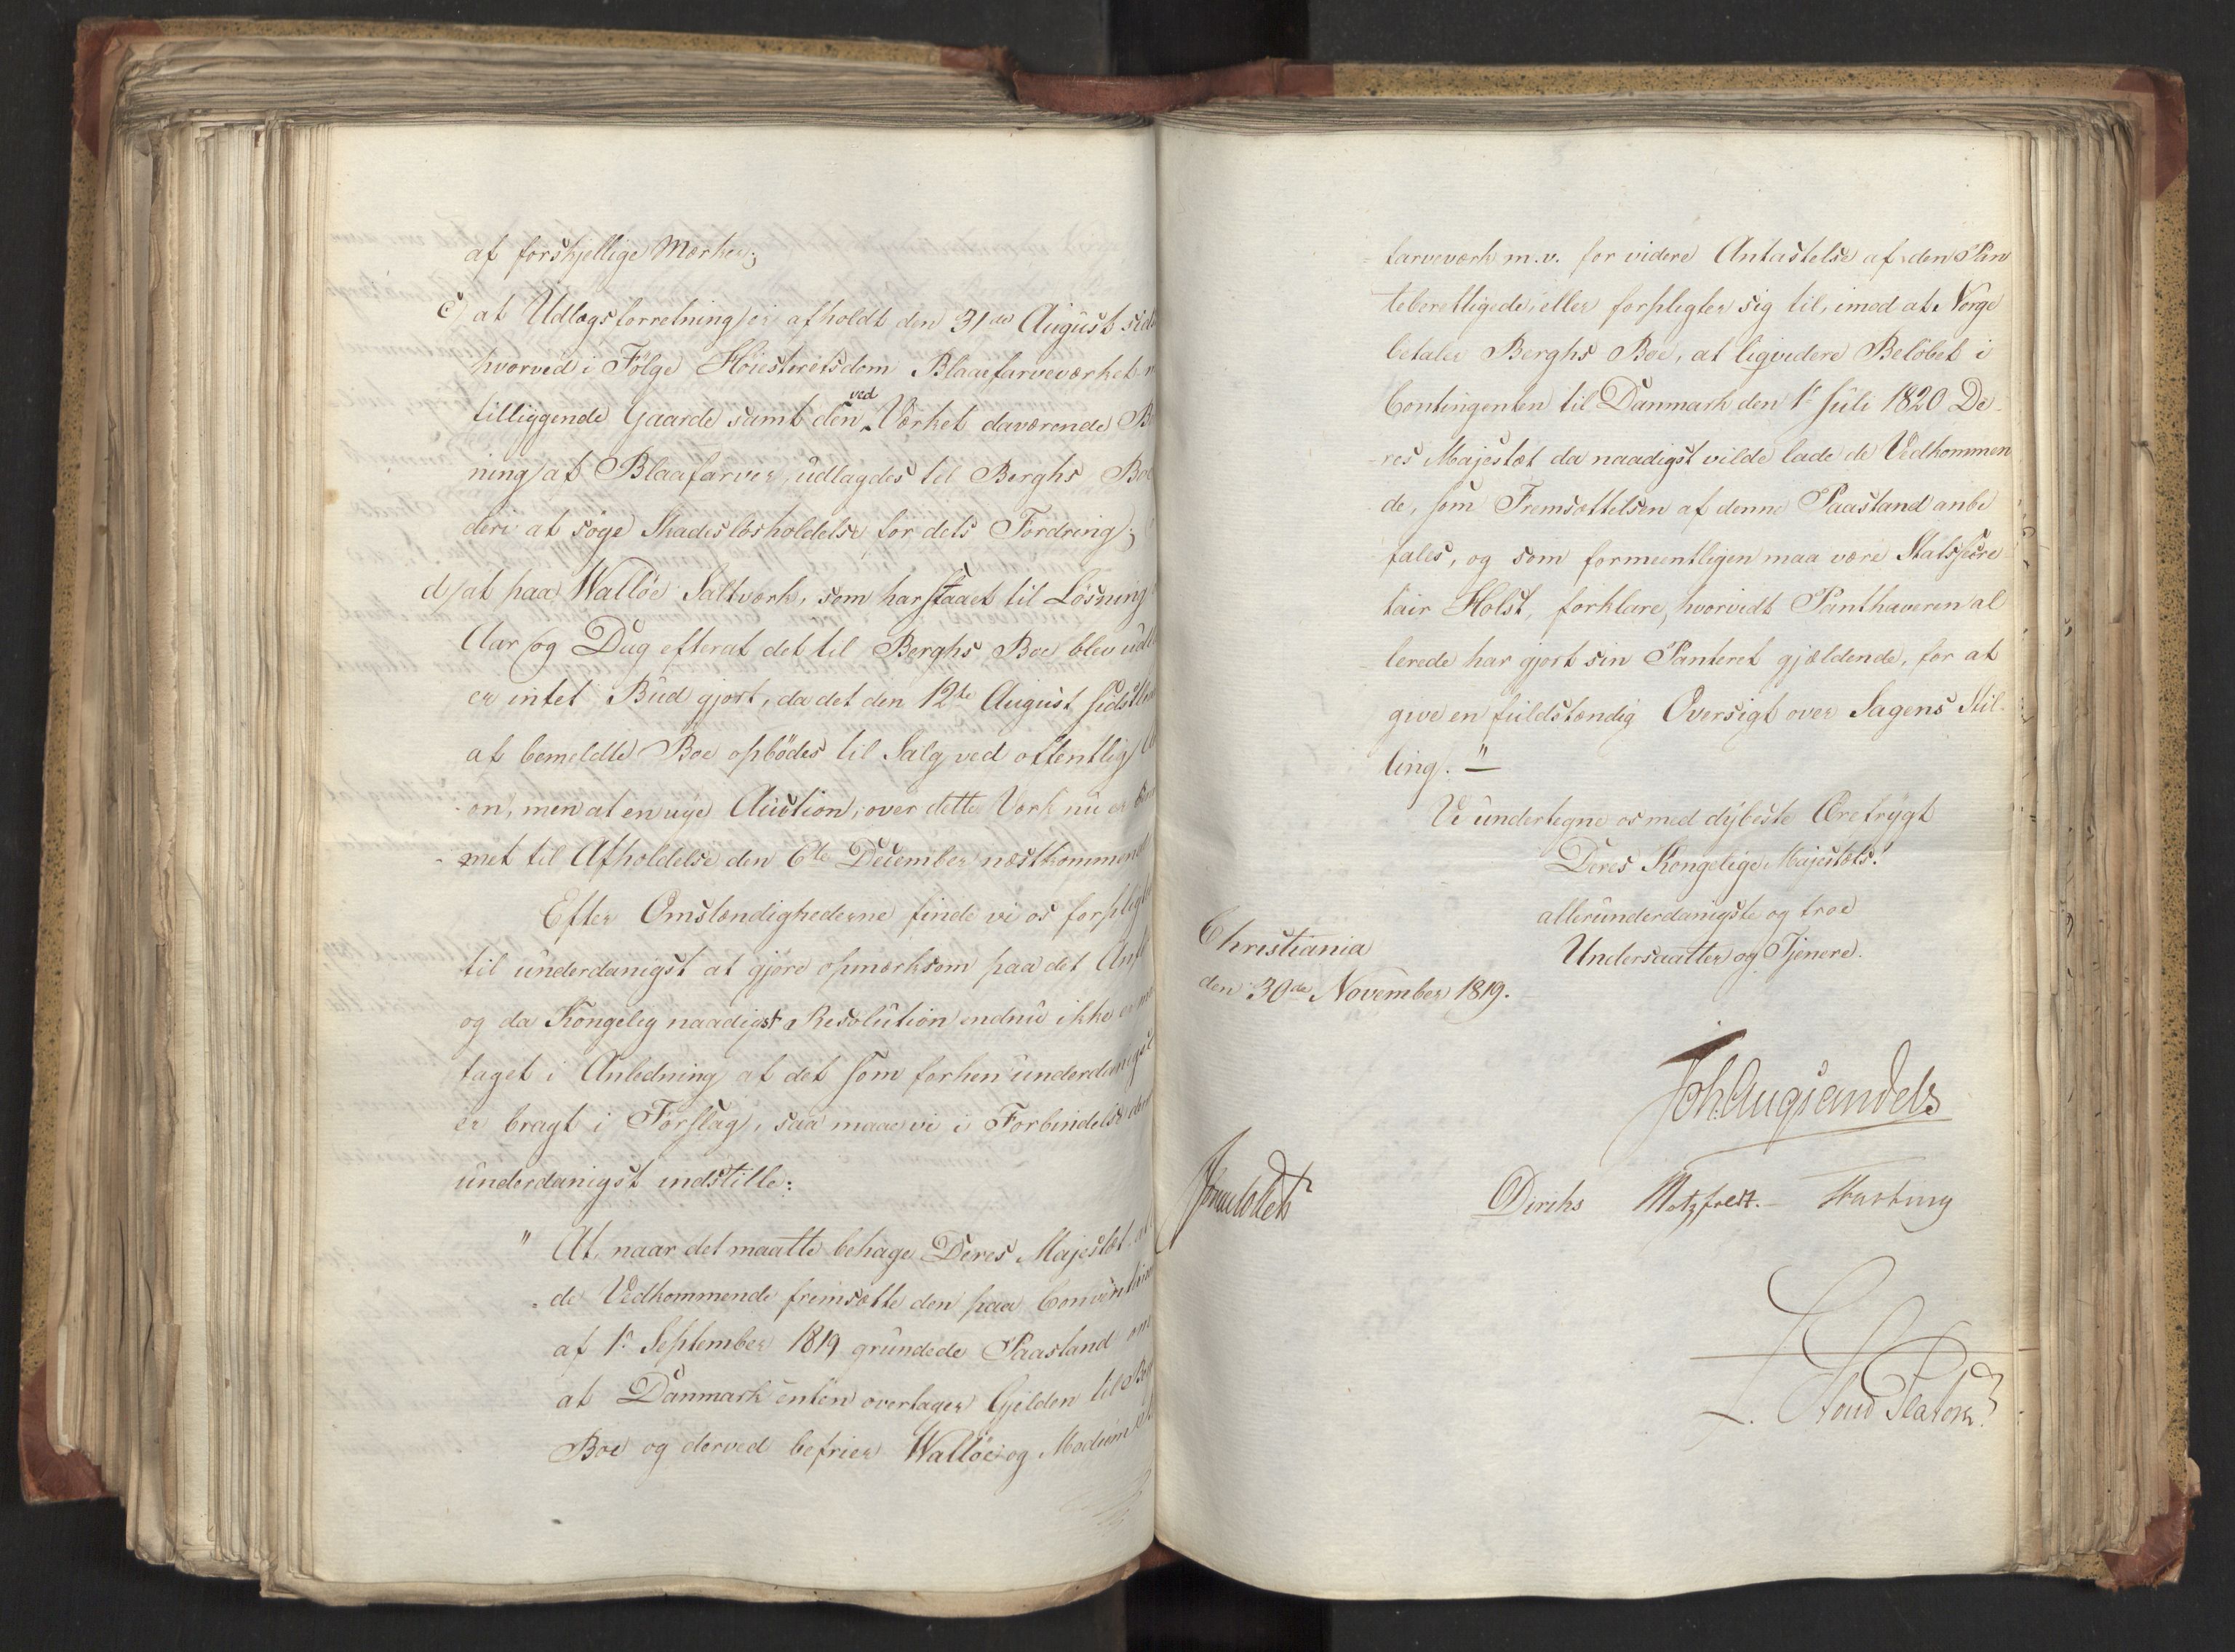 af forskjellige Mærker;
c) at Udlægsforretning er afholdt den 31de August sids
hvorved i Følge Høiesteretsdom Blaaefarveværket
tilliggende Gaarde samt den ved Værket daværende B
ning af Blaafarver, udlagdes til Berghs Boe
deri at søge Skadesløsholdelse for dets Fordring;
d) at paa Walløe Saltværk, som har staaet til Løsning
Aar og Dag efterat det til Berghs Boe blev udl
er intet Bud gjort, da det den 12te August sidstl
af bemeldte Boe opbödes til Salg ved offentlig
on, men at en nye Auction, over dette Værk nu er
met til Afholdelse den 6te December næstkommend
Efter Omstændighederne finde vi os forpligt
til underdanigst at gjøre opmærksom paa det Anf
og da Kongelig naadigst Resolution endnu ikke er
taget i Anledning af det som forhen underdanigst
er bragt i Forslag, saa maae vi i Forbindelse der
underdanigst indstille:
" At naar det maatte behage Deres Majestæt at
de Vedkommende fremsætte den paa Convention
af 1. September 1819 grundede Paastand om
at Danmark enten overtager Gjelden til Ber
Boe og derved befrier Walløe og Modum
farveværk m.v. for videre Antastelse af den Pan
teberettigede, eller forpligter sig til, imod at Norge
betaler Berghs Boe, at liqvidere Beløbet i
Contingenten til Danmark den 1. Juli 1820 De-
res Majestæt da naadigst vilde lade de Vedkommen
de, som Fremsættelsen af denne Paastand anbe
fales, og som formeentligen maa være Statssecre
tair Holst, forklare, hvorvidt Panthaveren al
lerede har gjort sin Panteret gjældende, for at
give en fuldstændig Oversigt over Sagens Stil-
ling. "
Vi undertegne os med dybeste Ærefrygt
Deres Kongelige Majestæts!
allerunderdanigste og troe
Undersaatter og Tjenere.
Christiania
den 30de November 1819.
Joh. Aug Sandels
Diriks Motzfeldt. Hartung